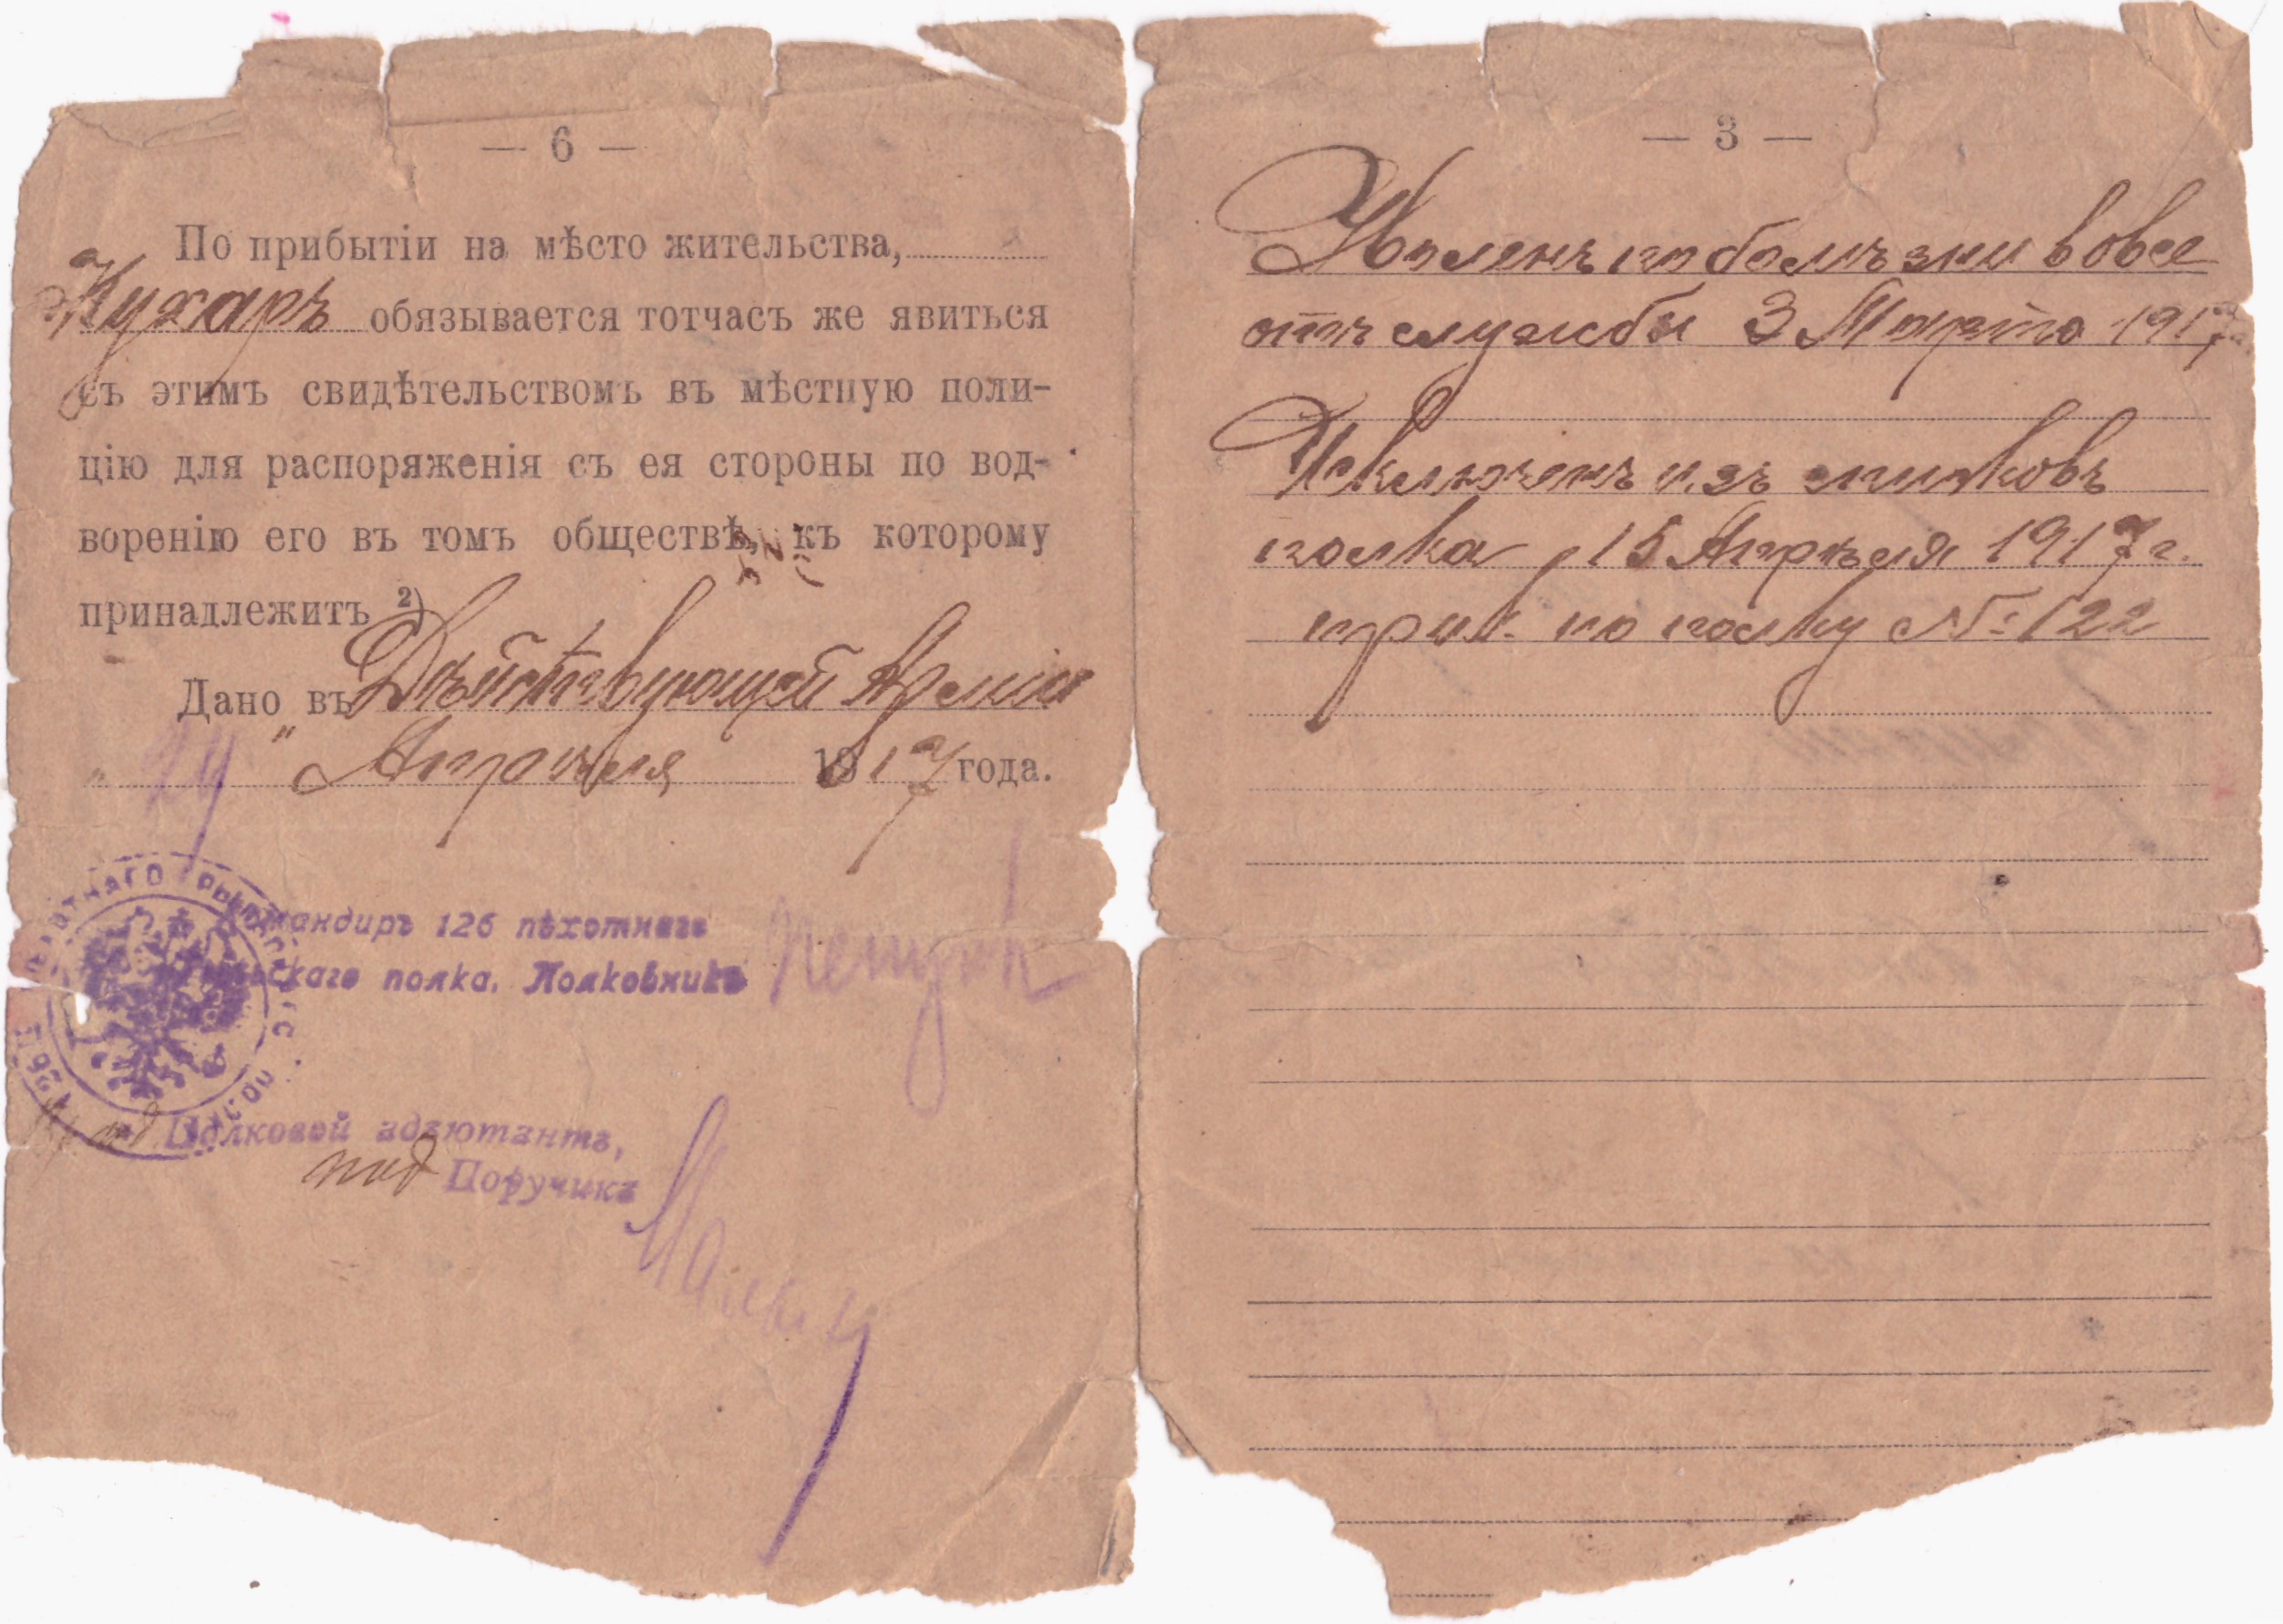 — 6 —
По прибытіи на мѣсто жительства,
Кухаръ обязывается тотчасъ же явиться
съ этимъ свидѣтельствомъ въ мѣстную поли-
цію для распоряженія съ ея стороны по вод-
воренію его въ томъ обществѣ, къ которому
принадлежитъ 2)
Дано въ Дѣйствующей Арміи
" 24 " Апрѣля 1917 года.
Командиръ 126 пѣхотнаго
Рыльскаго полка, Полковникъ
Полковой адъютантъ,
под Поручикъ
126 ПѢХОТНАГО РЫЛЬСКАГО ПОЛКА
— 3 —
Уволенъ по болѣзни вовсе
отъ службы 3 Марта 1917 г.
Исключенъ изъ списковъ
полка 15 Апрѣля 1917 г.
прик. по полку № 122